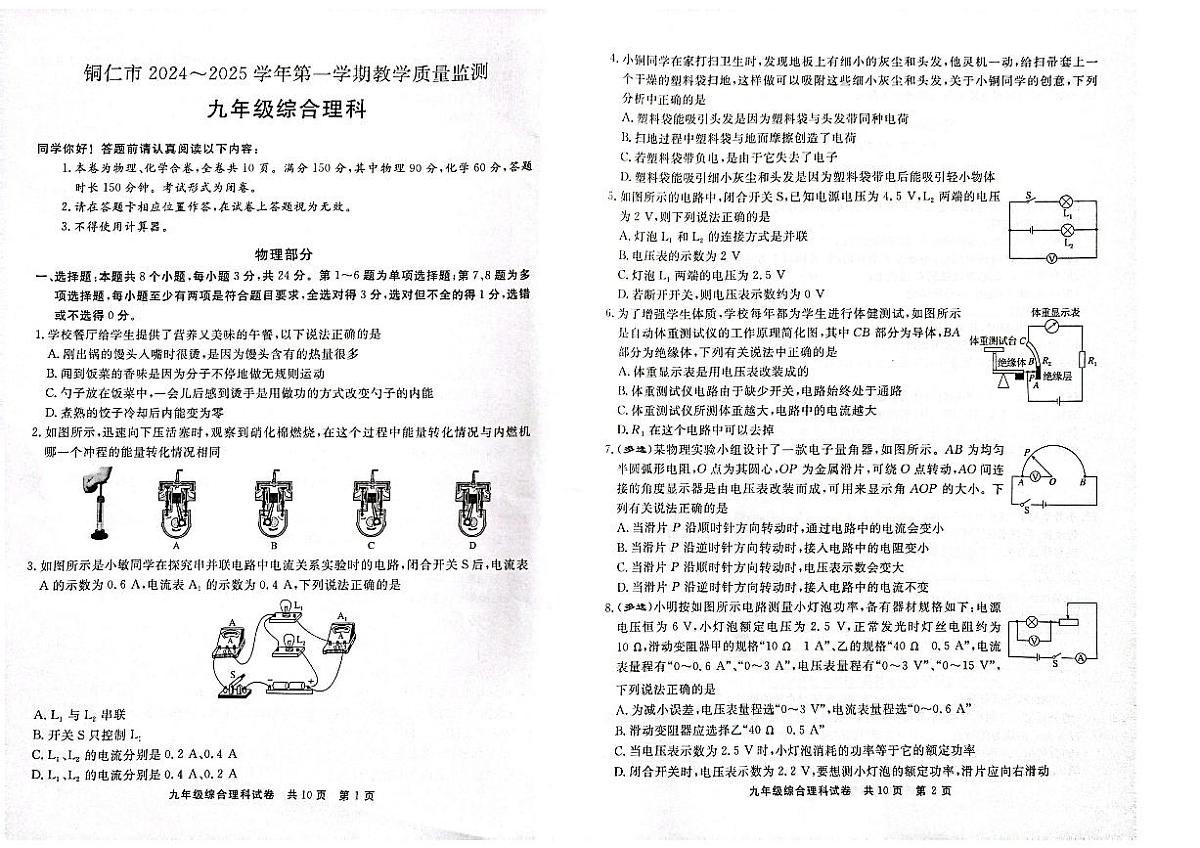 铜仁市 2024～2025 学年第一学期教学质量监测
九年级综合理科
同学你好！答题前请认真阅读以下内容：
1.本卷为物理、化学合卷,全卷共 10 页。满分 150 分,其中物理 90 分,化学 60 分,答题
时长 150 分钟。考试形式为闭卷。
2.请在答题卡相应位置作答,在试卷上答题视为无效。
3.不得使用计算器。
物理部分
一、选择题:本题共 8 个小题,每小题 3 分,共 24 分。第 1～6 题为单项选择题;第 7、8 题为多
项选择题,每小题至少有两项是符合题目要求,全选对得 3 分,选对但不全的得 1 分,选错
或不选得 0 分。
1.学校餐厅给学生提供了营养又美味的午餐,以下说法正确的是
A.刚出锅的馒头入嘴时很烫,是因为馒头含有的热量很多
B.闻到饭菜的香味是因为分子不停地做无规则运动
C.勺子放在饭菜中,一会儿后感到烫手是用做功的方式改变勺子的内能
D.煮熟的饺子冷却后内能变为零
2.如图所示,迅速向下压活塞时,观察到硝化棉燃烧,在这个过程中能量转化情况与内燃机
哪一个冲程的能量转化情况相同
A
B
C
D
3.如图所示是小敏同学在探究串并联电路中电流关系实验时的电路,闭合开关 S 后,电流表
A 的示数为 0.6 A,电流表 A₁ 的示数为 0.4 A,下列说法正确的是
A
L₁
A₁
S
－
＋
A. L₁ 与 L₂ 串联
B. 开关 S 只控制 L₂
C. L₁、L₂ 的电流分别是 0.2 A、0.4 A
D. L₁、L₂ 的电流分别是 0.4 A、0.2 A
九年级综合理科试卷 共 10 页 第 1 页
4.小铜同学在家打扫卫生时,发现地板上有细小的灰尘和头发,他灵机一动,给扫帚套上一
个干燥的塑料袋扫地,这样做可以吸附这些细小灰尘和头发,关于小铜同学的创意,下列
分析中正确的是
A.塑料袋能吸引头发是因为塑料袋与头发带同种电荷
B.扫地过程中塑料袋与地面摩擦创造了电荷
C.若塑料袋带负电,是由于它失去了电子
D.塑料袋能吸引细小灰尘和头发是因为塑料袋带电后能吸引轻小物体
5.如图所示的电路中,闭合开关 S,已知电源电压为 4.5 V,L₂ 两端的电压
为 2 V,则下列说法正确的是
A.灯泡 L₁ 和 L₂ 的连接方式是并联
B.电压表的示数为 2 V
C.灯泡 L₁ 两端的电压为 2.5 V
D.若断开开关,则电压表示数约为 0 V
S
L₁
L₂
V
6.为了增强学生体质,学校每年都为学生进行体健测试,如图所示
是自动体重测试仪的工作原理简化图,其中 CB 部分为导体,BA
部分为绝缘体,下列有关说法中正确的是
A.体重显示表是用电压表改装成的
B.体重测试仪电路由于缺少开关,电路始终处于通路
C.体重测试仪所测体重越大,电路中的电流越大
D. R₁ 在这个电路中可以去掉
体重显示表
体重测试台 C
绝缘体 B
R₂
R₁
P
绝缘层
A
7.(多选)某物理实验小组设计了一款电子量角器,如图所示。AB 为均匀
半圆弧形电阻,O 点为其圆心,OP 为金属滑片,可绕 O 点转动,AO 间连
接的角度显示器是由电压表改装而成,可用来显示角 AOP 的大小。下
列有关说法正确的是
A.当滑片 P 沿顺时针方向转动时,通过电路中的电流会变小
B.当滑片 P 沿逆时针方向转动时,接入电路中的电阻变小
C.当滑片 P 沿顺时针方向转动时,电压表示数会变大
D.当滑片 P 沿逆时针方向转动时,接入电路中的电流不变
P
V
A
O
B
S
8.(多选)小明按如图所示电路测量小灯泡功率,备有器材规格如下:电源
电压恒为 6 V,小灯泡额定电压为 2.5 V,正常发光时灯丝电阻约为
10 Ω,滑动变阻器甲的规格“10 Ω 1 A”、乙的规格“40 Ω 0.5 A”,电流
表量程有“0～0.6 A”、“0～3 A”,电压表量程有“0～3 V”、“0～15 V”,
下列说法正确的是
A.为减小误差,电压表量程选“0～3 V”,电流表量程选“0～0.6 A”
B.滑动变阻器应选择乙“40 Ω 0.5 A”
C.当电压表示数为 2.5 V 时,小灯泡消耗的功率等于它的额定功率
D.闭合开关时,电压表示数为 2.2 V,要想测小灯泡的额定功率,滑片应向右滑动
V
S
A
九年级综合理科试卷 共 10 页 第 2 页